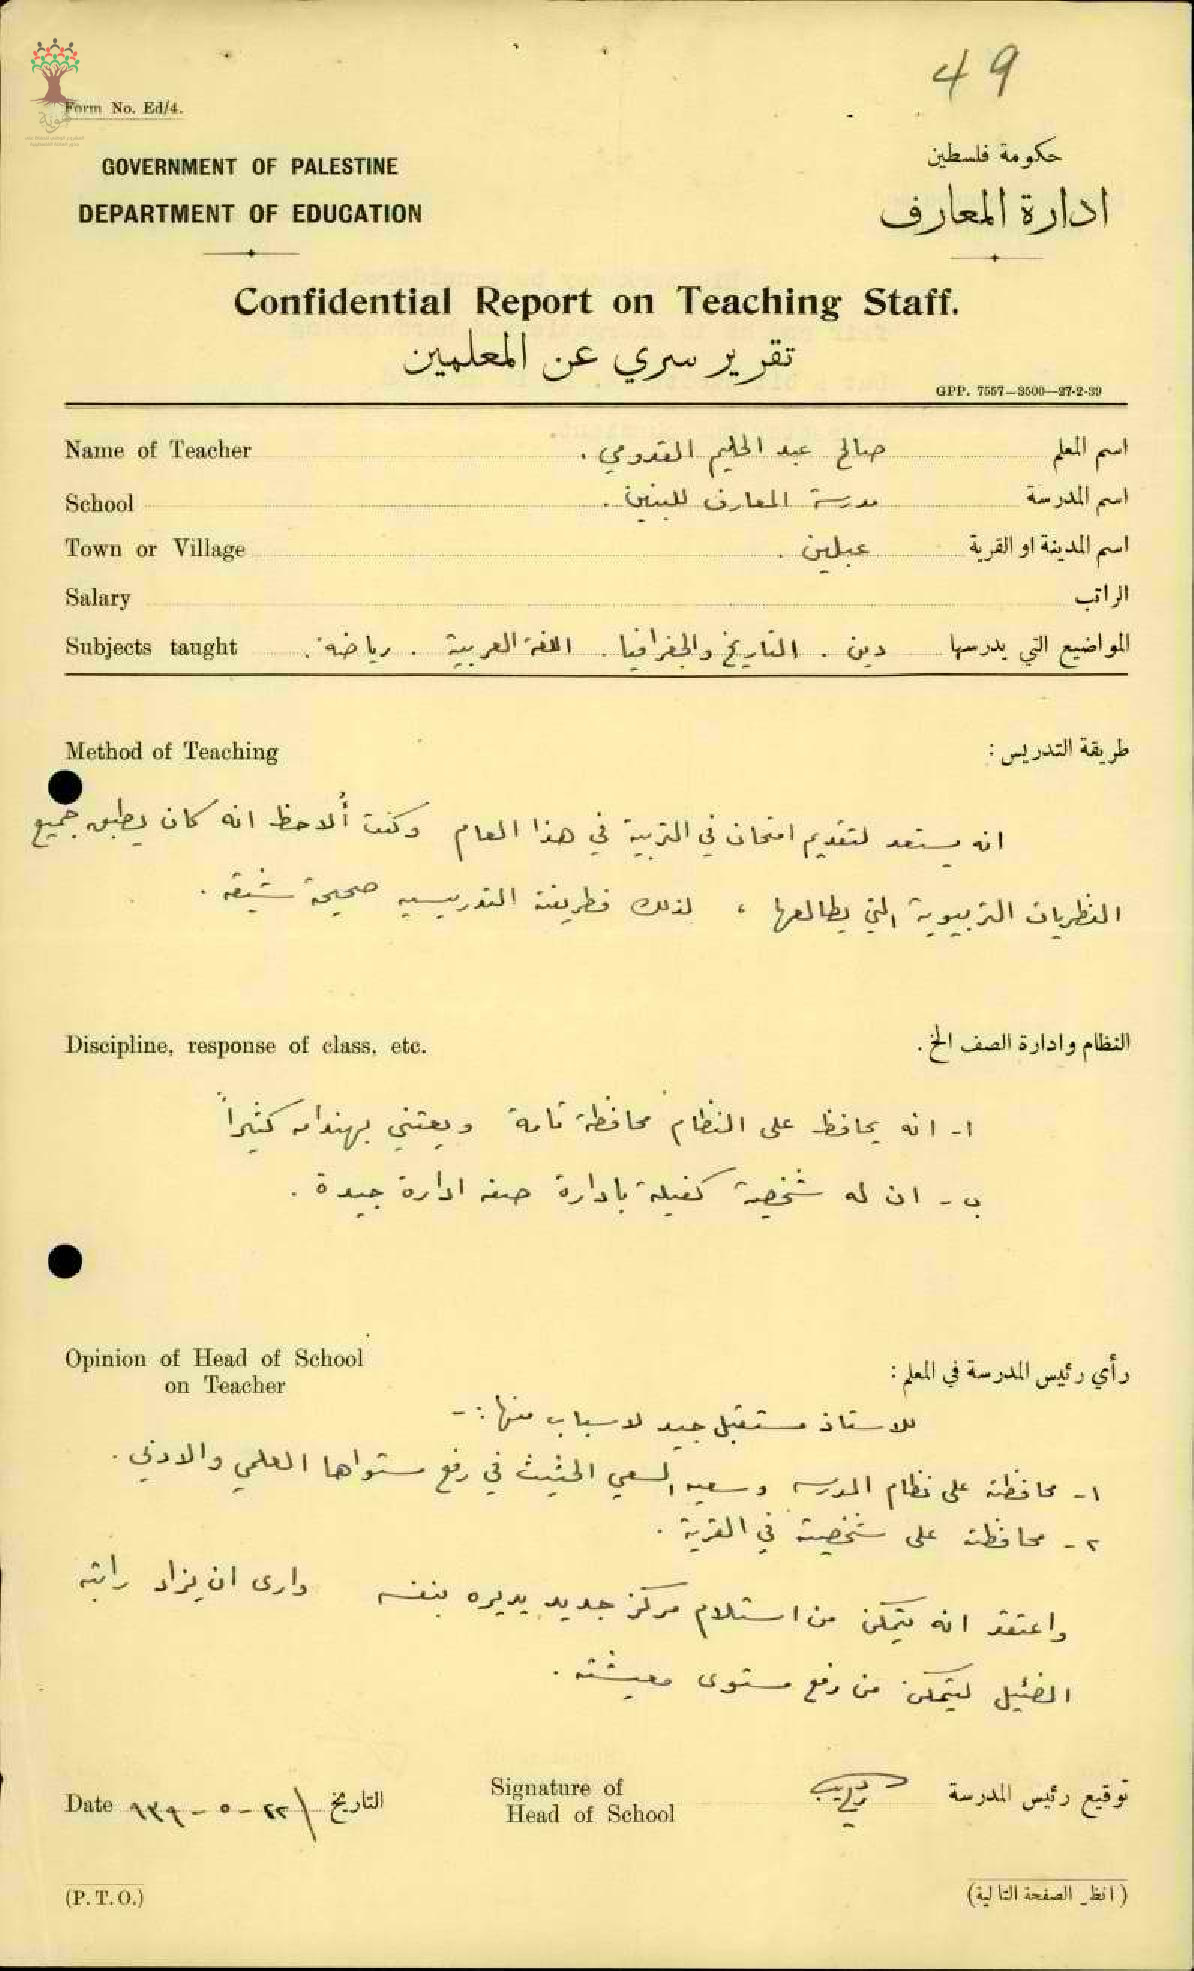 49
Form No. Ed/4.
هوية
GOVERNMENT OF PALESTINE
DEPARTMENT OF EDUCATION
حكومة فلسطين
ادارة المعارف
Confidential Report on Teaching Staff.
تقرير سري عن المعلمين
GPP. 7557—3500—27-2-39
Name of Teacher صالح عبد الحليم القدومي . اسم المعلم
School مدرسة المعارف للبنين . اسم المدرسة
Town or Village عبلين . اسم المدينة او القرية
Salary الراتب
Subjects taught دين . التاريخ والجغرافيا . اللغة العربية . رياضة . المواضيع التي يدرسها
Method of Teaching طريقة التدريس :
انه يستعد لتقديم امتحان في التربية في هذا العام وكنت ألاحظ انه كان يطبق جميع
النظريات التربيوية التي يطالعها ، لذلك فطريقته التدريسيه صحيحة شيقه .
Discipline, response of class, etc. النظام وادارة الصف الخ .
١- انه يحافظ على النظام محافظة تامة ويعتني بهندامه كثيراً
ب - ان له شخصية كفيلة بادارة صفه ادارة جيدة .
Opinion of Head of School
on Teacher
رأي رئيس المدرسة في المعلم :
للاستاذ مستقبل جيد لاسباب منها :-
١- محافظته على نظام المدرسه وسعيه السعي الحثيث في رفع مستواها العلمي والادبي .
٢- محافظته على شخصيته في القرية .
واعتقد انه يتمكن من استلام مركز جديد يديره بنفسه وارى ان يزاد راتبه
الضئيل ليتمكن من رفع مستوى معيشته .
Date ٢٢ - ٥ - ٩٣٩ التاريخ
Signature of
Head of School
توقيع رئيس المدرسة
(P. T. O.)
( انظر الصفحة التالية )